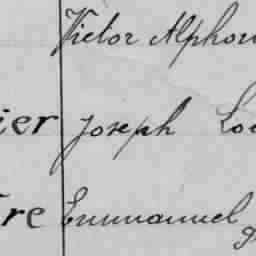 Victor Alphon
ier Joseph Lou
re Emmanuel